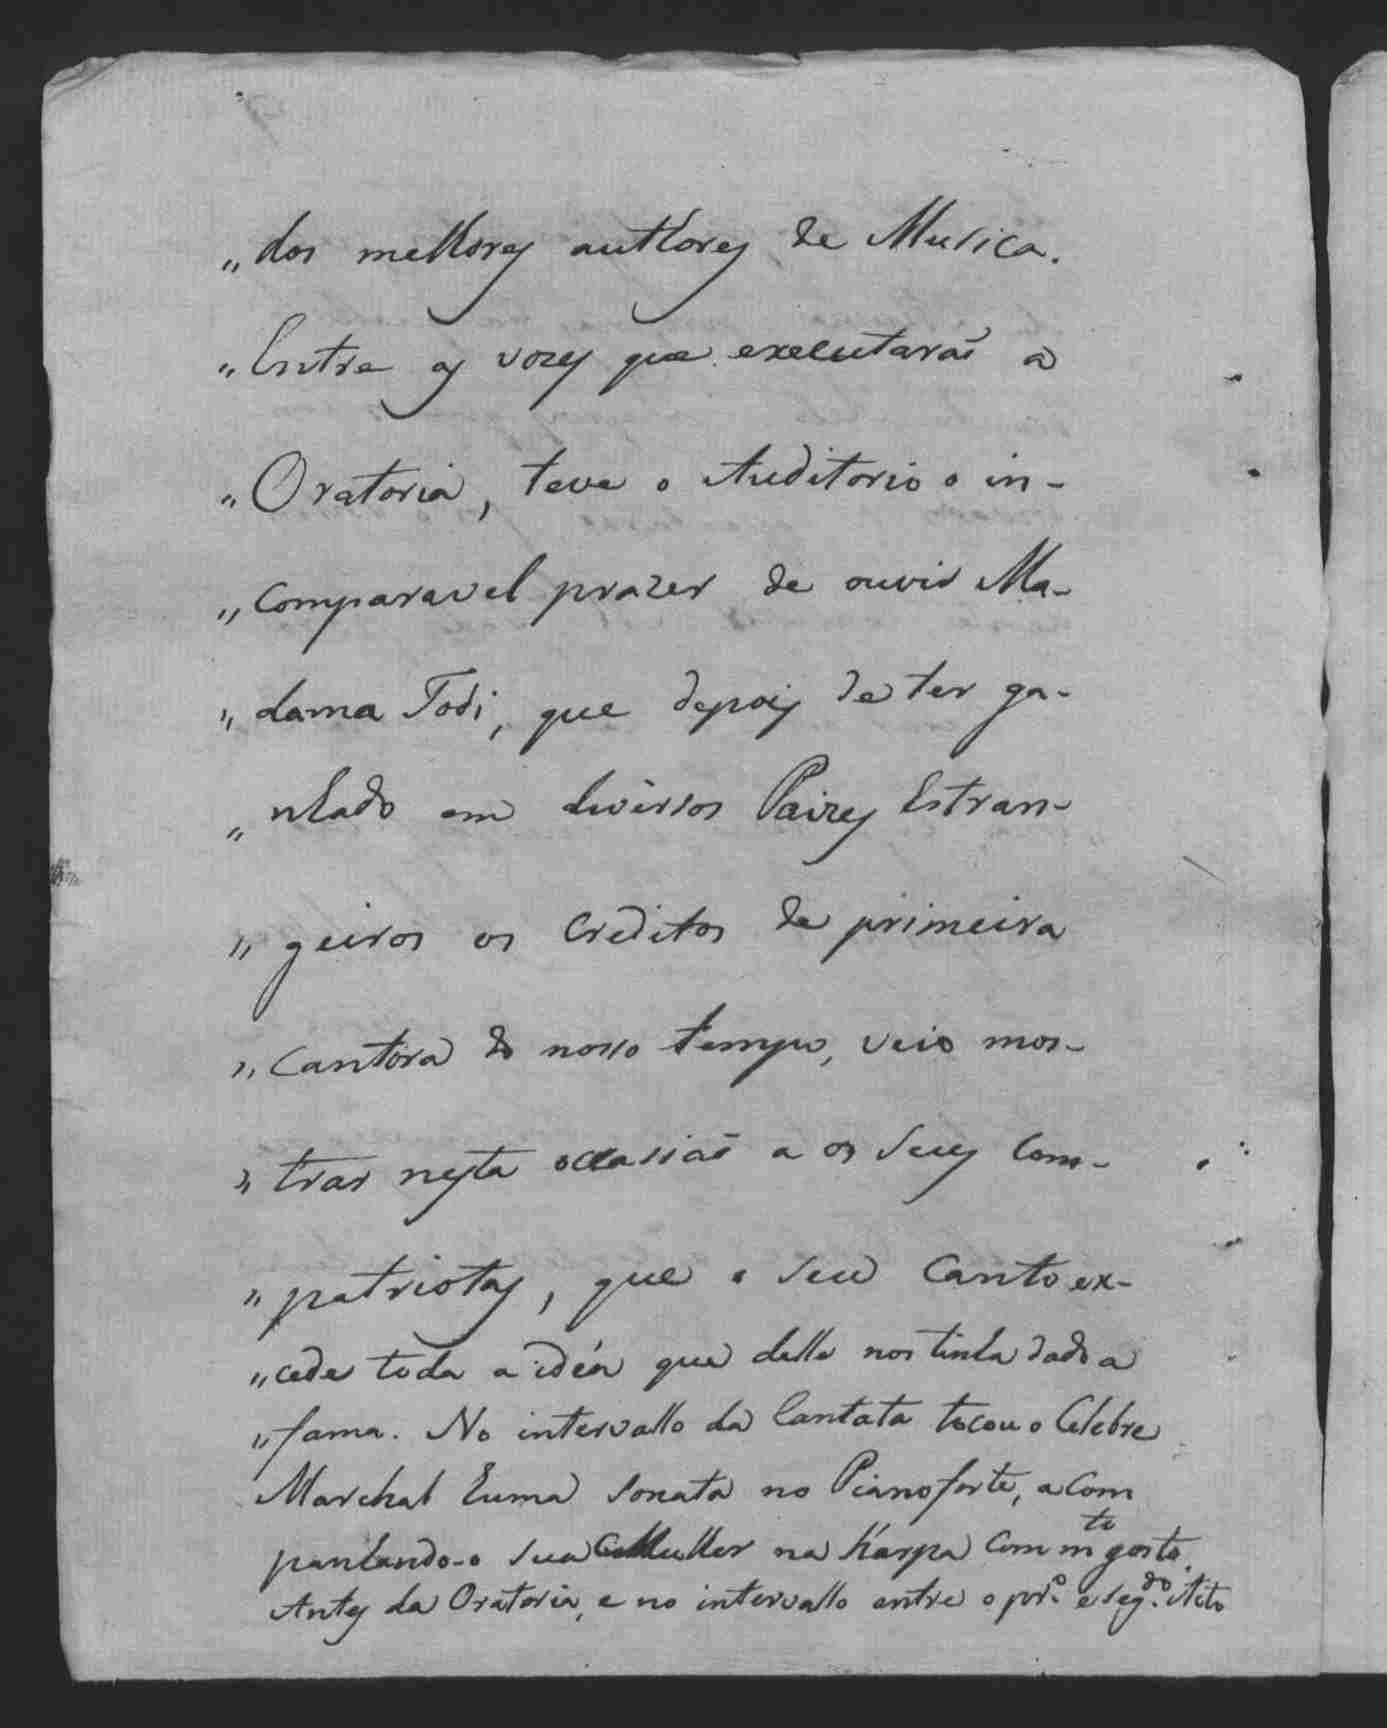 „dos melhores authores de Musica.
„Entre as vozes que executaraõ a
„Oratoria, teve o Auditorio o in-
„comparavel prazer de ouvir Ma-
„dama Todi, que depois de ter ga-
„nhado em diversos Paizes Estran-
„geiros os Creditos de primeira
„Cantora do nosso tempo, veio mos-
„trar nesta occasiaõ a os seus Com-
„patriotas, que o seu Canto ex-
„cede toda a idéa que delle nos tinha dado a
„fama. No intervallo da Cantata tocou o Celebre
Marchal huma Sonata no Pianoforte, acom
panhando-o sua Mulher na Harpa com mto gosto.
Antes da Oratoria, e no intervallo entre o pr.o e seg.do Acto